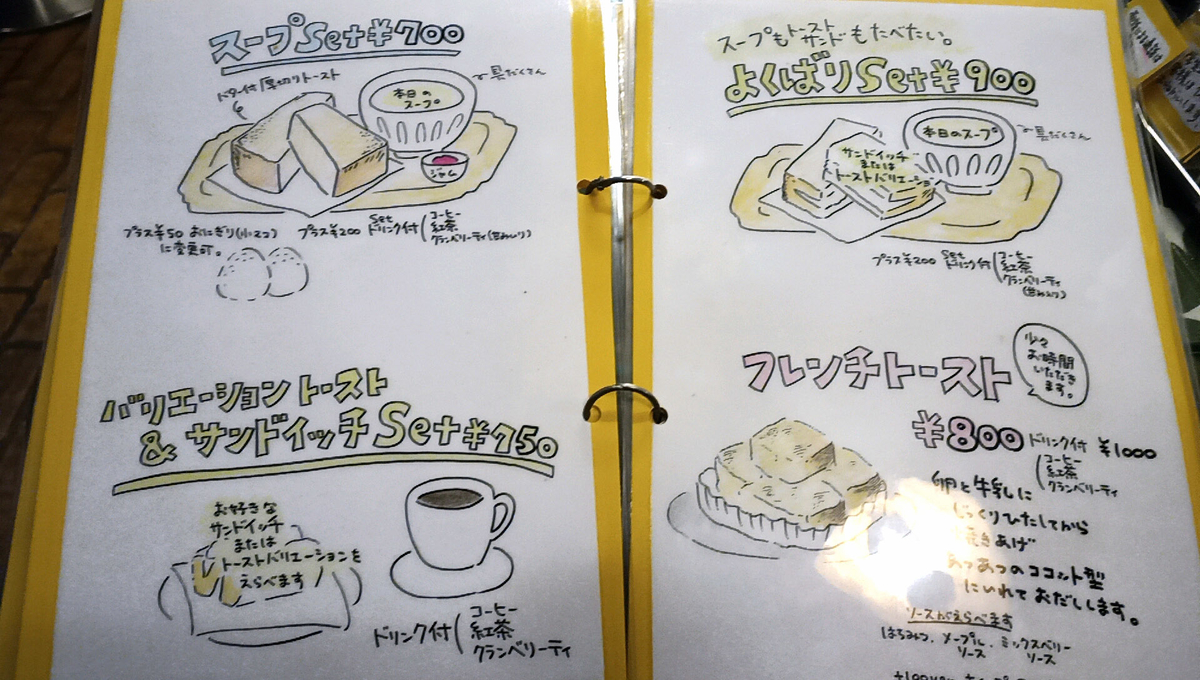 スープSet ¥700
バター付 厚切りトースト
本日の
スープ
具だくさん
ジャム
プラス¥50 おにぎり(小2コ)
に変更可。
プラス¥200 Set
ドリンク付
コーヒー
紅茶
クランベリーティ(甘みいり)
バリエーション トースト
& サンドイッチ Set ¥750
お好きな
サンドイッチ
または
トーストバリエーションを
えらべます
ドリンク付
コーヒー
紅茶
クランベリーティ
スープもトーストサンドもたべたい。
よくばりSet ¥900
本日のスープ
具だくさん
サンドイッチ
または
トーストバリエーショ
プラス¥200 Set
ドリンク付
コーヒー
紅茶
クランベリーティ
(甘みいり)
フレンチトースト
少々
お時間
いただき
ます。
¥800 ドリンク付 ¥1000
コーヒー
紅茶
クランベリーティ
卵と牛乳に
じっくりひたしてから
焼きあげ
あつあつのココット型
にいれておだしします。
ソースがえらべます
はちみつ、メープルソース、ミックスベリーソース